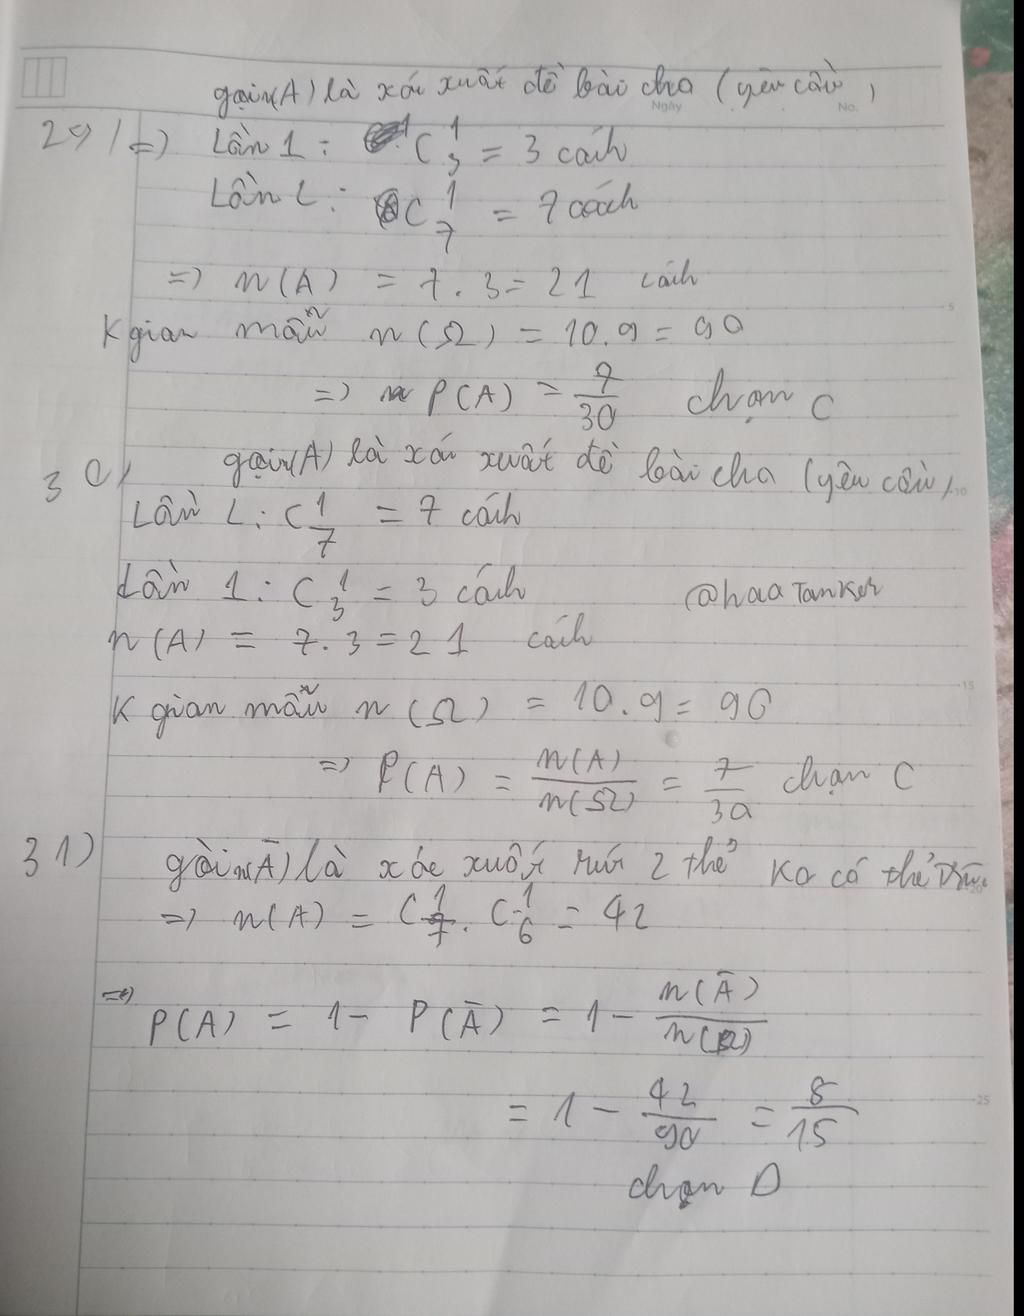 gọi n(A) là xác xuất đề bài cho (yêu cầu)
Ngày No.
29/ => Lần 1: C¹₃ = 3 cách
Lần 2: C¹₇ = 7 cách
=> n(A) = 7.3 = 21 cách
K gian mẫu n(Ω) = 10.9 = 90
=> P(A) = 7/30 chọn C
30) gọi n(A) là xác xuất đề bài cho (yêu cầu)
Lần 2: C¹₇ = 7 cách
Lần 1: C¹₃ = 3 cách
@haaTanker
n(A) = 7.3 = 21 cách
K gian mẫu n(Ω) = 10.9 = 90
=> P(A) = n(A)/n(Ω) = 7/30 chọn C
31) gọi n(Ā) là xác xuất rút 2 thẻ ko có thẻ
=> n(A) = C¹₇ . C¹₆ = 42
=> P(A) = 1 - P(Ā) = 1 - n(Ā)/n(Ω)
= 1 - 42/90 = 8/15
chọn D